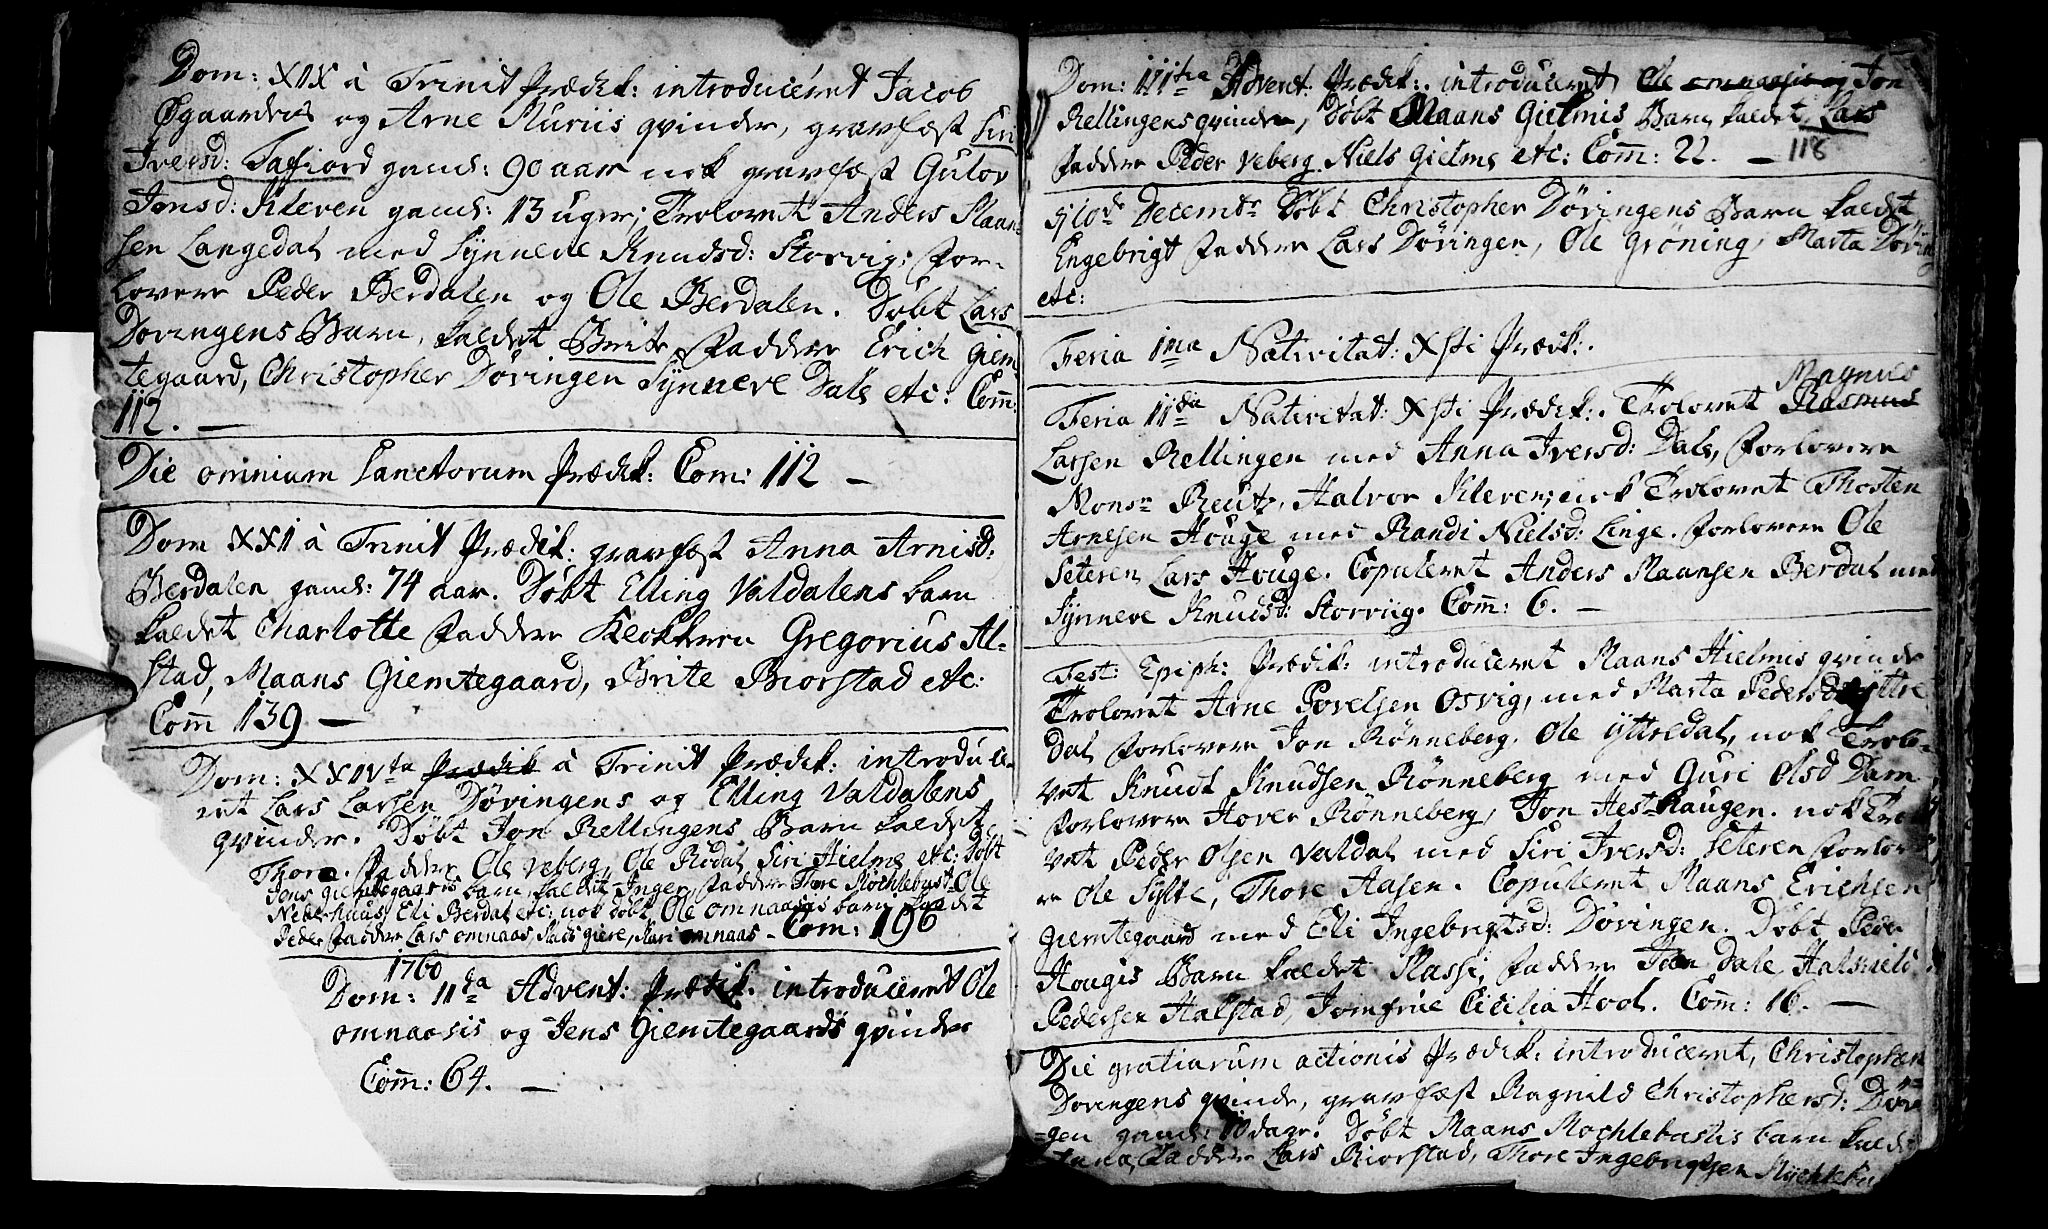 Dom: XIX à Trinit Prædik: introduceret Jacob
Øgaardens og Arne Muriis qvinder, gravfæst Siri
Iversd: Taffiord gaml: 90 aar nok gravfæst Gulov
Jensd: Kleven gaml: 13 uger; Trolovet Anders Maan
sen Langedal med Synneve Knudsd: Storvig; For-
lovere Peder Berdalen og Ole Berdalen. Døbt Lars
Døvingens Barn, kaldet Brite Faddere Erich Giem-
tegaard, Christopher Døvingen Synneve Dale etc: Com:
112. —
Die omnium Sanctorum Prædik: Com: 112 —
Dom XXI à Trinit Prædik: gravfæst Anna Arnisd:
Berdalen gaml: 74 aar. Døbt Elling Valdalens barn
kaldet Charlotte Faddere Klokkeren Gregorius Al-
stad, Maans Giemtegaard, Brite Biorstad etc:
Com 139 —
Dom: XXIVta Prædik à Trinit Prædik: introduce-
ret Lars Larsen Døvingens og Elling Valdalens
qvinder. Døbt Jon Rellingens Barn kaldet
Thore. Faddere Ole Veberg, Ole Rødal Siri Hielme etc: Døbt
Jens Giemtegaards barn, kaldet Inger, Faddere Thore Møchlebust Ole
Nedrehuus, Eli Berdal etc: nok døbt, Ole omnaasis barn kaldet
Peder Faddere Lars omnaas Mads giere, Kari omnaas – Com: 196
1760
Dom: IIda Advent: Prædik. introduceret Ole
omnaasis og Jens Giemtegaards qvinder
Com: 64. —
Dom: IIItia Advent: Prædik: introduceret, Ole omnaasis og Jon
Rellingens qvinder, Døbt Maans Gielmis Barn kaldet, Lars
Faddere Peder Veberg Niels Gielme etc: Com: 22. —
118
d 10de Decembr Døbt Christopher Døvingens Barn kaldet
Engebrigt Faddere Lars Døvingen, Ole Grøning, Marta Døving
etc:
Feria Ima Nativitat: Xsti Prædik:.
Feria IIda Nativitat: Xsti Prædik:. Trolovet Rasmus
Magnus
Larsen Rellingen med Anna Iversd: Dale, Forlovere
Monsr Reutz, Halvor Kleven; nok Trolovet Thosten
Arnesen Houge med Randi Nielsd: Linge. Forlovere Ole
Seteren Lars Houge. Copuleret Anders Maansen Berdal med
Synneve Knudsd: Storviig. Com: 6. —
Fest: Epiph: Prædik: introduceret Maans Hielmis qvinde
Trolovet Arne Povelsen Osvig, med Marta Pedersd Yttre
Dal Forlovere Jon Rønneberg. Ole Ytteldal, nok Trolo-
vet Knudt Knudsen Rønneberg med Guri Olsd Dam
Forlovere Hover Rønneberg, Jon Hesthaugen. nok Trolo
vet Peder Olsen Valdal med Siri Iversd: Seteren Forlove
re Ole Sylte, Thore Aasen. Copuleret Maans Erichsen
Giemtegaard med Eli Ingebrigtsd: Døvingen. Døbt Peder
Hougis Barn kaldet Massi, Faddere Jon Dale Halsteld
Pedersen Halstad, Jomfrue Cicilia Hool. Com: 16. —
Die gratiarum actionis Prædik: introduceret, Christopher
Døvingens qvinde, gravfæst Ragnild Christophersd: Døvin=
=gen gaml: 10 dage. Døbt Maans Mochlebustis barn kald:
Anna, Faddere Lars Biorstad, Thore Ingebrigtsen Møchlebust